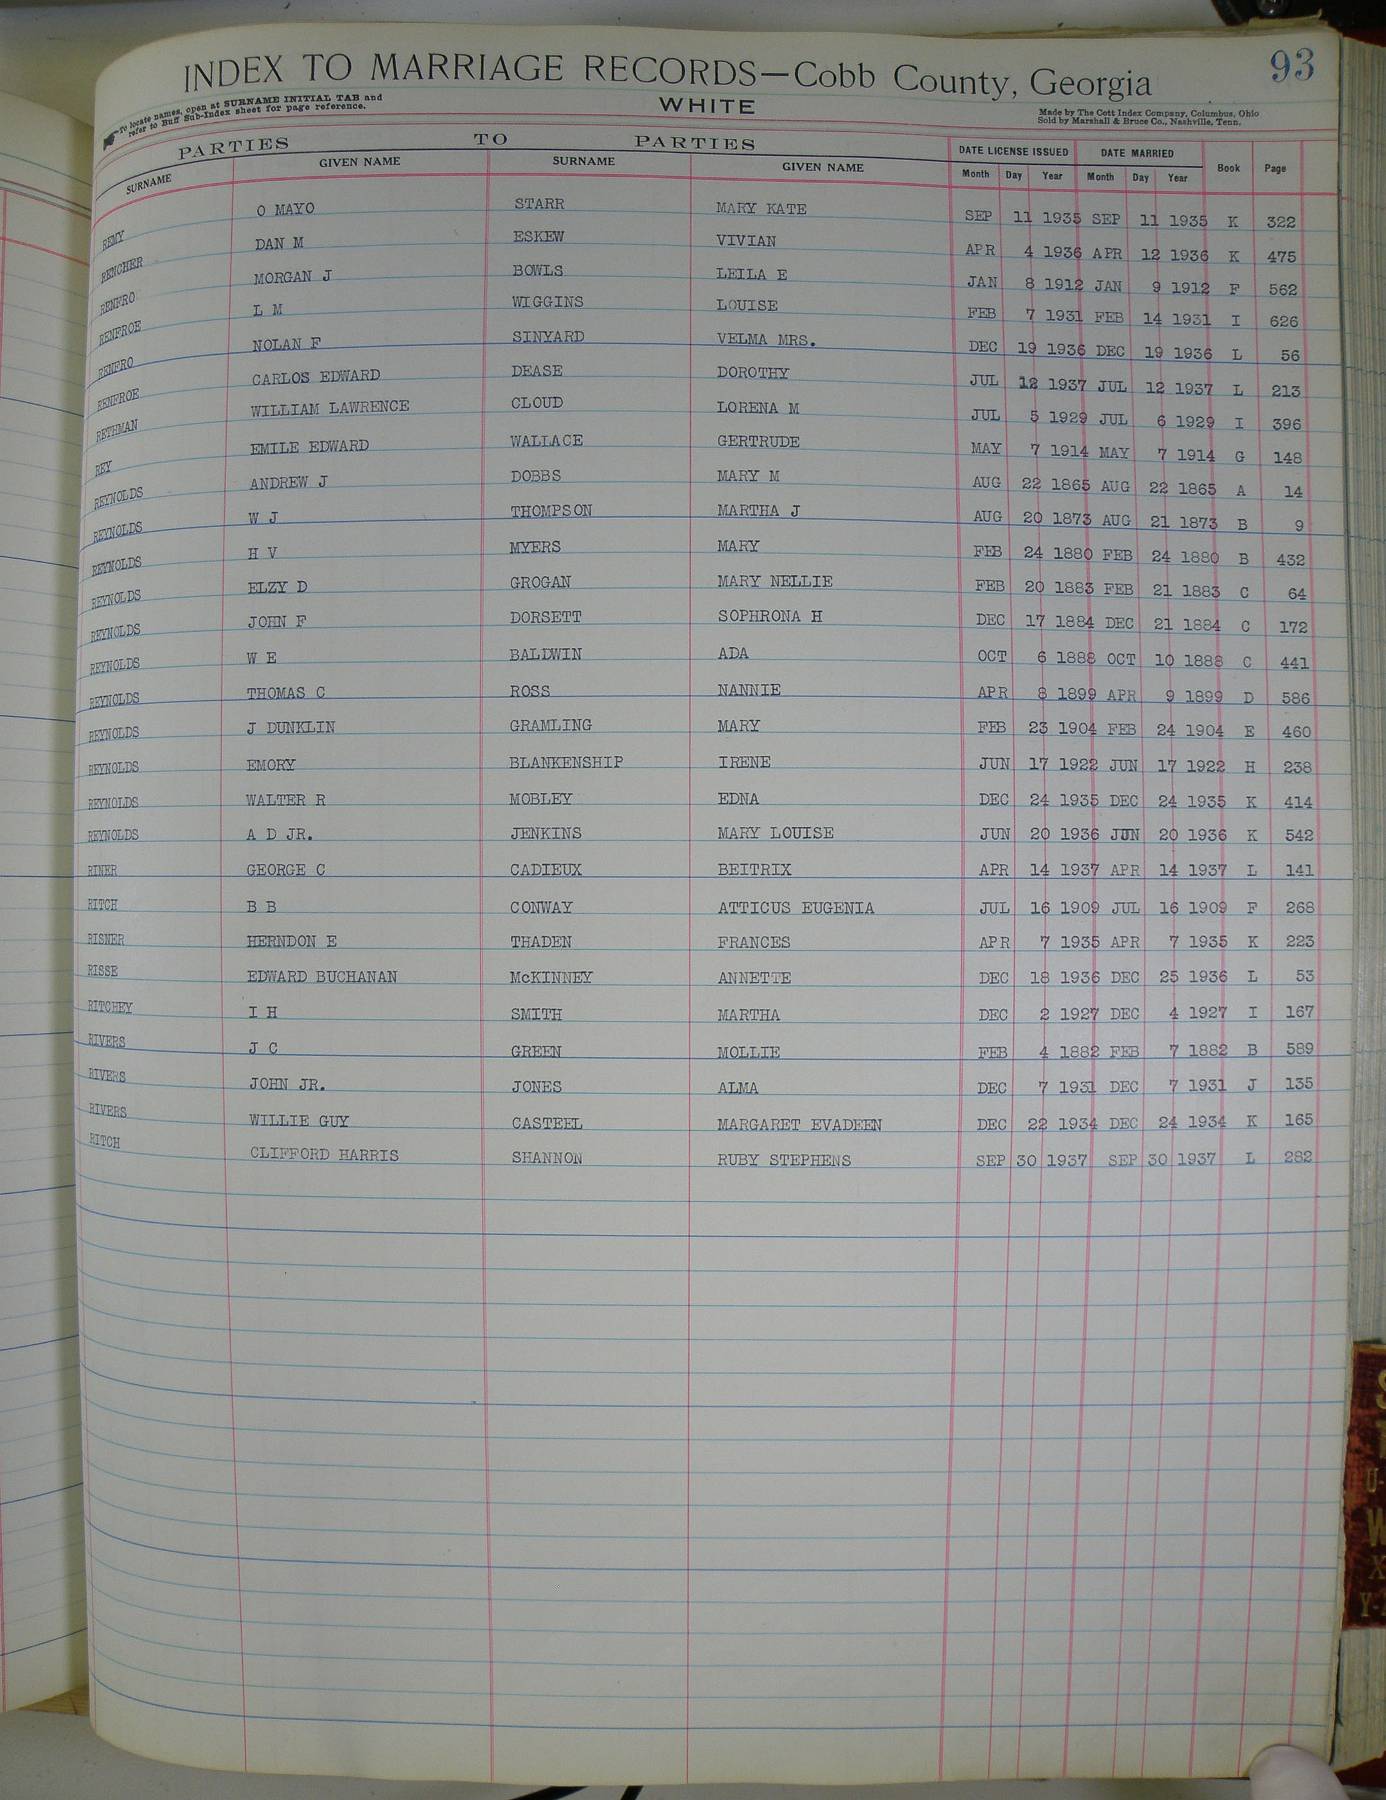 INDEX TO MARRIAGE RECORDS—Cobb County, Georgia 93
To locate names, open at SURNAME INITIAL TAB and
refer to Buff Sub-Index sheet for page reference.
WHITE
Made by The Cott Index Company, Columbus, Ohio
Sold by Marshall & Bruce Co., Nashville, Tenn.
PARTIES TO PARTIES DATE LICENSE ISSUED DATE MARRIED Book Page
SURNAME GIVEN NAME SURNAME GIVEN NAME Month Day Year Month Day Year
REMY O MAYO STARR MARY KATE SEP 11 1935 SEP 11 1935 K 322
RENCHER DAN M ESKEW VIVIAN APR 4 1936 APR 12 1936 K 475
RENFRO MORGAN J BOWLS LEILA E JAN 8 1912 JAN 9 1912 F 562
RENFROE L M WIGGINS LOUISE FEB 7 1931 FEB 14 1931 I 626
RENFRO NOLAN F SINYARD VELMA MRS. DEC 19 1936 DEC 19 1936 L 56
RENFROE CARLOS EDWARD DEASE DOROTHY JUL 12 1937 JUL 12 1937 L 213
RETHMAN WILLIAM LAWRENCE CLOUD LORENA M JUL 5 1929 JUL 6 1929 I 396
REY EMILE EDWARD WALLACE GERTRUDE MAY 7 1914 MAY 7 1914 G 148
REYNOLDS ANDREW J DOBBS MARY M AUG 22 1865 AUG 22 1865 A 14
REYNOLDS W J THOMPSON MARTHA J AUG 20 1873 AUG 21 1873 B 9
REYNOLDS H V MYERS MARY FEB 24 1880 FEB 24 1880 B 432
REYNOLDS ELZY D GROGAN MARY NELLIE FEB 20 1883 FEB 21 1883 C 64
REYNOLDS JOHN F DORSETT SOPHRONA H DEC 17 1884 DEC 21 1884 C 172
REYNOLDS W E BALDWIN ADA OCT 6 1888 OCT 10 1888 C 441
REYNOLDS THOMAS C ROSS NANNIE APR 8 1899 APR 9 1899 D 586
REYNOLDS J DUNKLIN GRAMLING MARY FEB 23 1904 FEB 24 1904 E 460
REYNOLDS EMORY BLANKENSHIP IRENE JUN 17 1922 JUN 17 1922 H 238
REYNOLDS WALTER R MOBLEY EDNA DEC 24 1935 DEC 24 1935 K 414
REYNOLDS A D JR. JENKINS MARY LOUISE JUN 20 1936 JUN 20 1936 K 542
RINER GEORGE C CADIEUX BEITRIX APR 14 1937 APR 14 1937 L 141
RITCH B B CONWAY ATTICUS EUGENIA JUL 16 1909 JUL 16 1909 F 268
RISNER HERNDON E THADEN FRANCES APR 7 1935 APR 7 1935 K 223
RISSE EDWARD BUCHANAN McKINNEY ANNETTE DEC 18 1936 DEC 25 1936 L 53
RITCHEY I H SMITH MARTHA DEC 2 1927 DEC 4 1927 I 167
RIVERS J C GREEN MOLLIE FEB 4 1882 FEB 7 1882 B 589
RIVERS JOHN JR. JONES ALMA DEC 7 1931 DEC 7 1931 J 135
RIVERS WILLIE GUY CASTEEL MARGARET EVADEEN DEC 22 1934 DEC 24 1934 K 165
RITCH CLIFFORD HARRIS SHANNON RUBY STEPHENS SEP 30 1937 SEP 30 1937 L 282